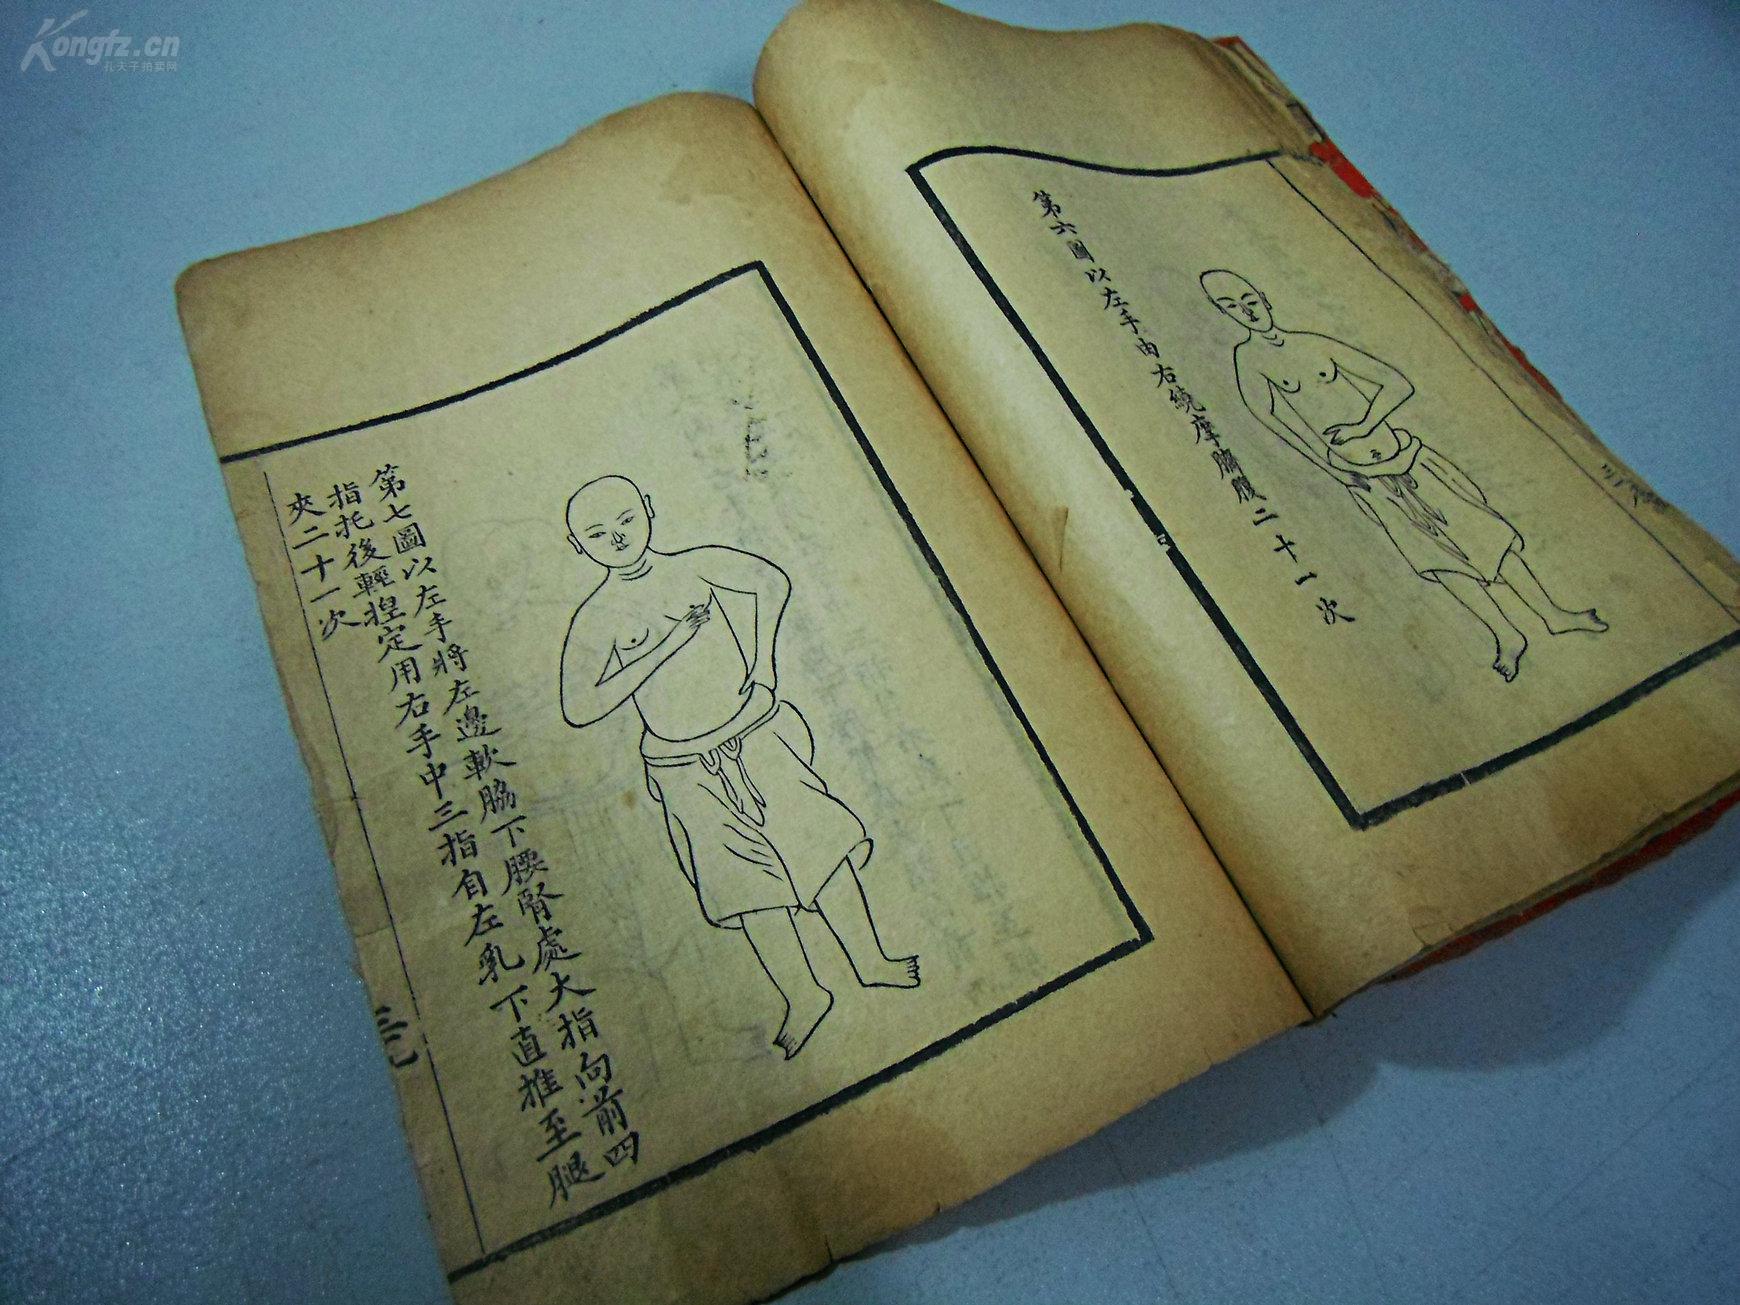 Kongfz.cn
孔夫子拍卖网
第六圖以左手由右繞摩臍腹二十一次
第七圖以左手將左邊軟脇下腰腎處大指向前四
指托後輕揑定用右手中三指自左乳下直推至腿
夾二十一次